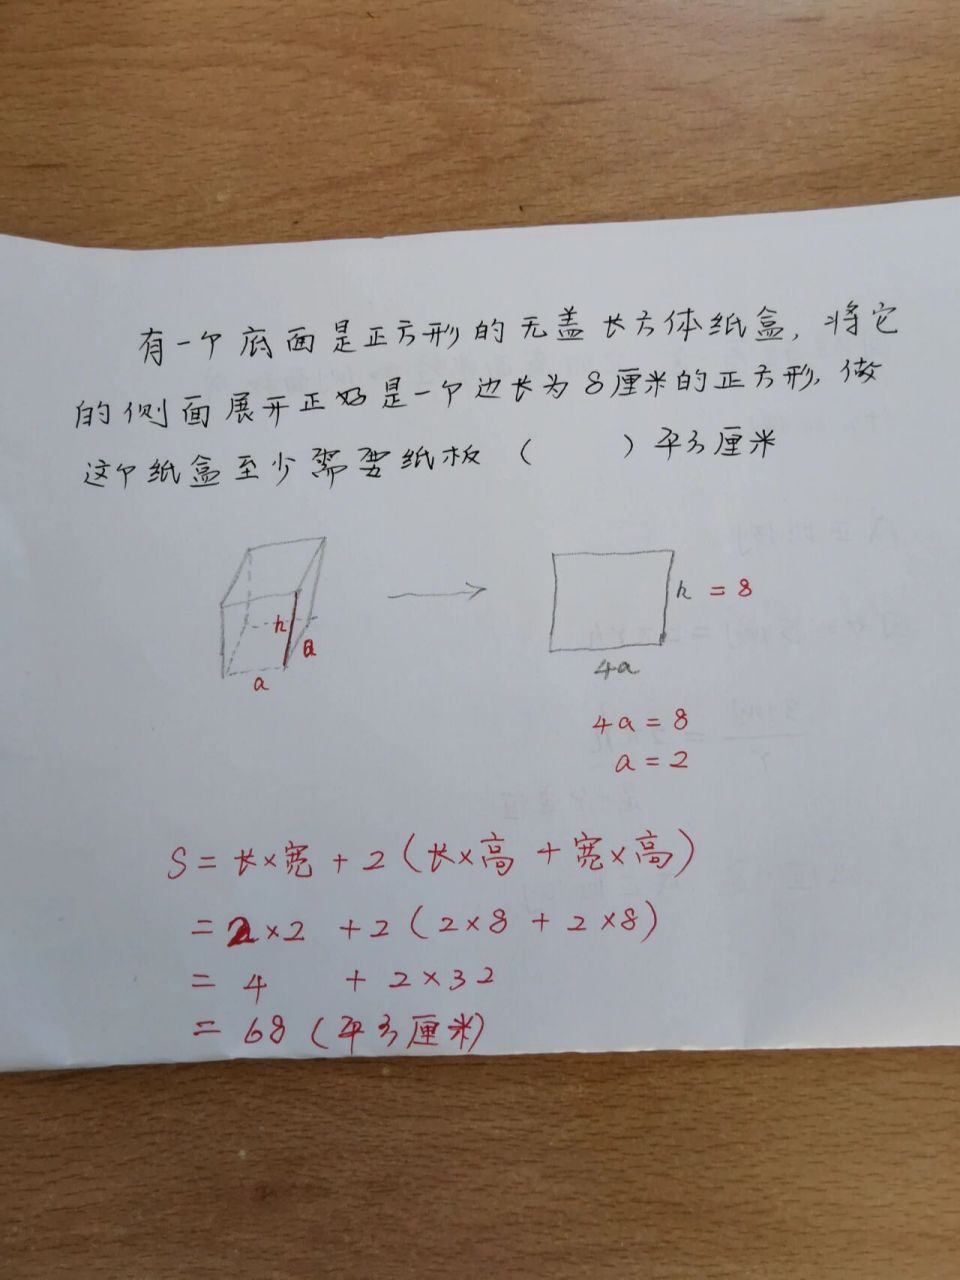 有一个底面是正方形的无盖长方体纸盒,将它
的侧面展开正好是一个边长为8厘米的正方形,做
这个纸盒至少需要纸板( )平方厘米
h
a
a
h = 8
4a
4a = 8
a = 2
S = 长×宽 + 2(长×高 + 宽×高)
= 2×2 + 2(2×8 + 2×8)
= 4 + 2×32
= 68(平方厘米)